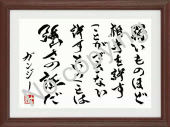 弱いものほど
相手を許す
ことができない
許すということは
強さの証だ
ガンジー